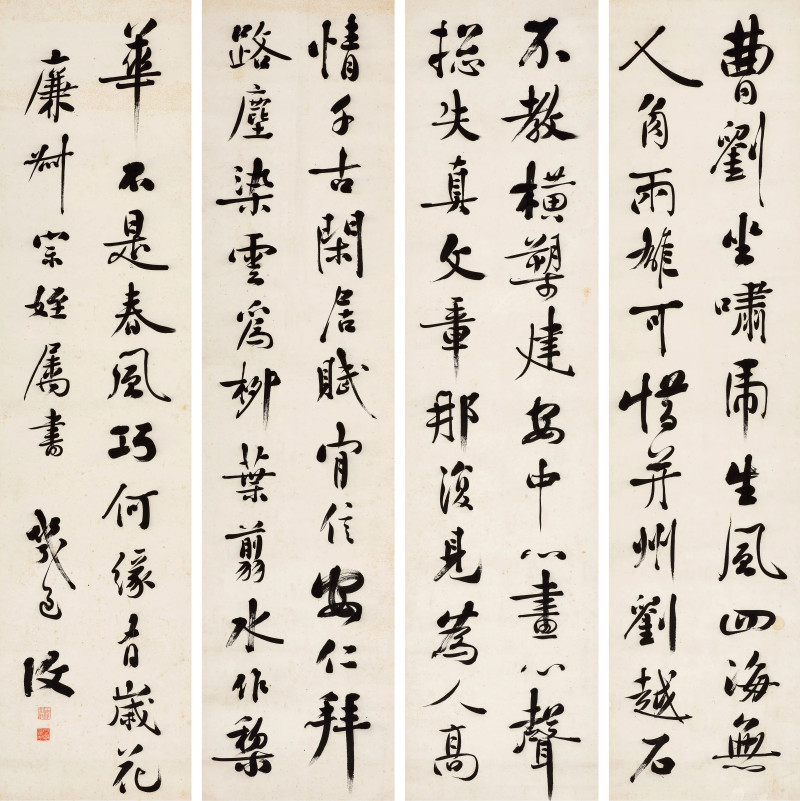 曹劉坐嘯虎生風四海無
人角兩雄可惜并州劉越石
不教橫槊建安中心畫心聲
摠失真文章那復見為人高
情千古閑居賦肎信安仁拜
路塵染雲為柳葉翦水作梨
華不是春風巧何緣有歲花
廉宗姪屬書 幾道復